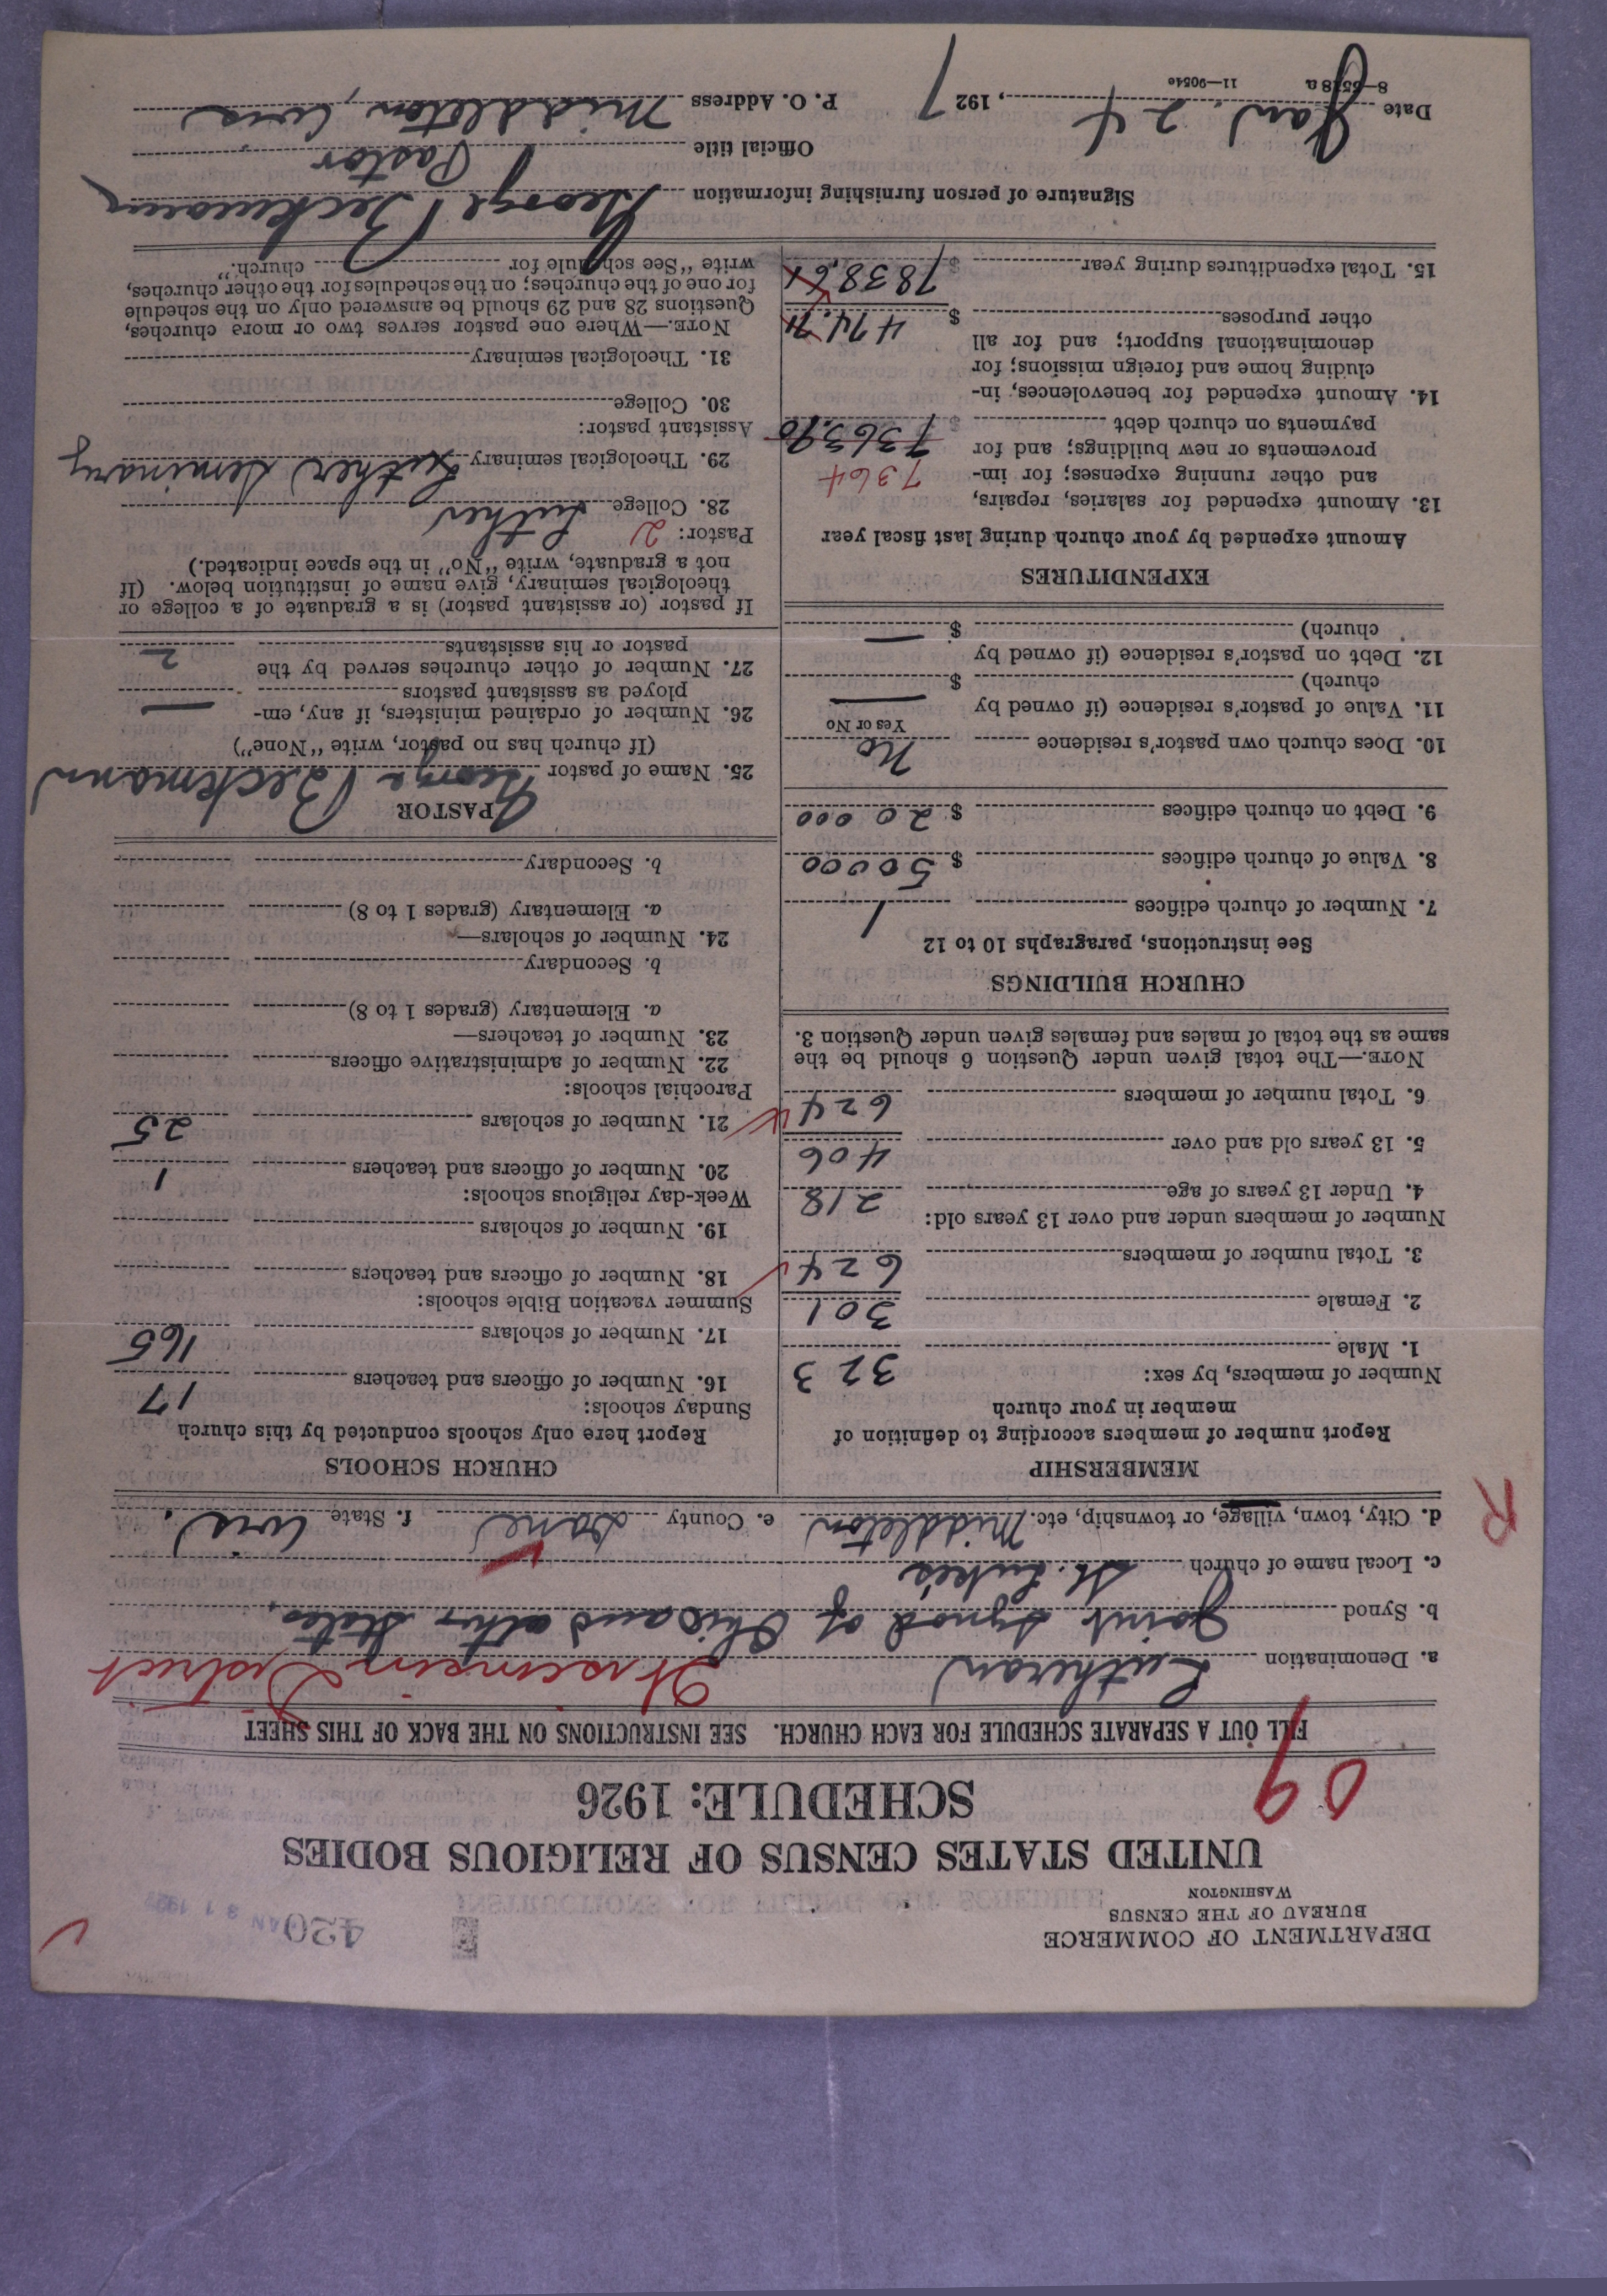 DEPARTMENT OF COMMERCE
BUREAU OF THE CENSUS
WASHINGTON
420
UNITED STATES CENSUS OF RELIGIOUS BODIES
SCHEDULE: 1926
09
FILL OUT A SEPARATE SCHEDULE FOR EACH CHURCH. SEE INSTRUCTIONS ON THE BACK OF THIS SHEET
a. Denomination Lutheran Wisconsin District
b. Synod Joint Synod of Ohio and other States.
c. Local name of church St. Luke's
d. City, town, village, or township, etc. Middleton e. County Dane f. State Wis.
R
MEMBERSHIP
Report number of members according to definition of
member in your church
Number of members, by sex:
1. Male 323
2. Female 301
3. Total number of members 624
Number of members under and over 13 years old:
4. Under 13 years of age 218
5. 13 years old and over 406
6. Total number of members 624
NOTE.—The total given under Question 6 should be the
same as the total of males and females given under Question 3.
CHURCH BUILDINGS
See instructions, paragraphs 10 to 12
7. Number of church edifices 1
8. Value of church edifices $ 50000
9. Debt on church edifices $ 20 000
10. Does church own pastor's residence No
Yes or No
11. Value of pastor's residence (if owned by
church) $ —
12. Debt on pastor's residence (if owned by
church) $ —
EXPENDITURES
Amount expended by your church during last fiscal year
13. Amount expended for salaries, repairs,
and other running expenses; for im- 7364
provements or new buildings; and for
payments on church debt $ 7363.90
14. Amount expended for benevolences, in-
cluding home and foreign missions; for
denominational support; and for all
other purposes $ 474.71
15. Total expenditures during year $ 7838.61
CHURCH SCHOOLS
Report here only schools conducted by this church
Sunday schools:
16. Number of officers and teachers 17
17. Number of scholars 165
Summer vacation Bible schools:
18. Number of officers and teachers
19. Number of scholars
Week-day religious schools:
20. Number of officers and teachers 1
21. Number of scholars 25
Parochial schools:
22. Number of administrative officers
23. Number of teachers—
a. Elementary (grades 1 to 8)
b. Secondary
24. Number of scholars—
a. Elementary (grades 1 to 8)
b. Secondary
PASTOR
25. Name of pastor George Beckmann
(If church has no pastor, write "None")
26. Number of ordained ministers, if any, em-
ployed as assistant pastors —
27. Number of other churches served by the
pastor or his assistants 2
If pastor (or assistant pastor) is a graduate of a college or
theological seminary, give name of institution below. (If
not a graduate, write "No" in the space indicated.)
Pastor: 2
28. College Luther
29. Theological seminary Luther Seminary
Assistant pastor:
30. College
31. Theological seminary
NOTE.—Where one pastor serves two or more churches,
Questions 28 and 29 should be answered only on the schedule
for one of the churches; on the schedules for the other churches,
write "See schedule for church."
Signature of person furnishing information George Beckmann
Official title Pastor
Date Jan. 24, 1927 P. O. Address Middleton, Wis
8—5518a 11—9054c